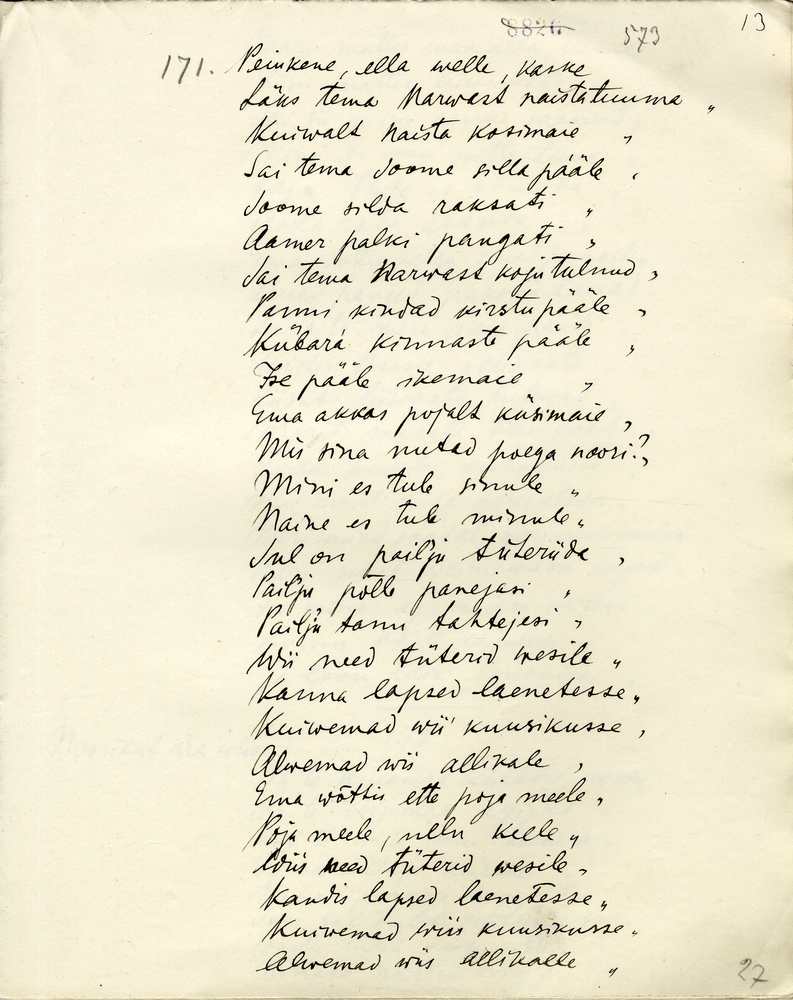 8826. 573 13
171. Peiukene, ella welle, kaske
Läks tema Narwast naistatuuma "
Kuiwalt naista kosimaie "
Sai tema Soome silla pääle "
Soome silda raksati "
Aamer palki paugati "
Sai tema Narwast koju tulnud "
Panni kindad kirstu pääle "
Kübara kinnaste pääle "
Ise pääle ikemaie "
Ema akkas pojalt küsimaie "
Mis sina nutad poega noori? "
Mini es tule sinule "
Naine es tule minule "
Sul on pailju tüteriida "
Pailju põlle panejasi "
Pailju tanu tahtejesi "
Wii need tüterid wesile "
Kanna lapsed laenetesse "
Kuiwemad wii kuusikusse "
Alwemad wii allikale "
Ema wõttis ette poja meele "
Poja meele, ullu keele "
Wiis need tüterid wesile "
Kandis lapsed laenetesse "
Kuiwemad wiis kuusikusse "
Alwemad wiis allikalle "
27